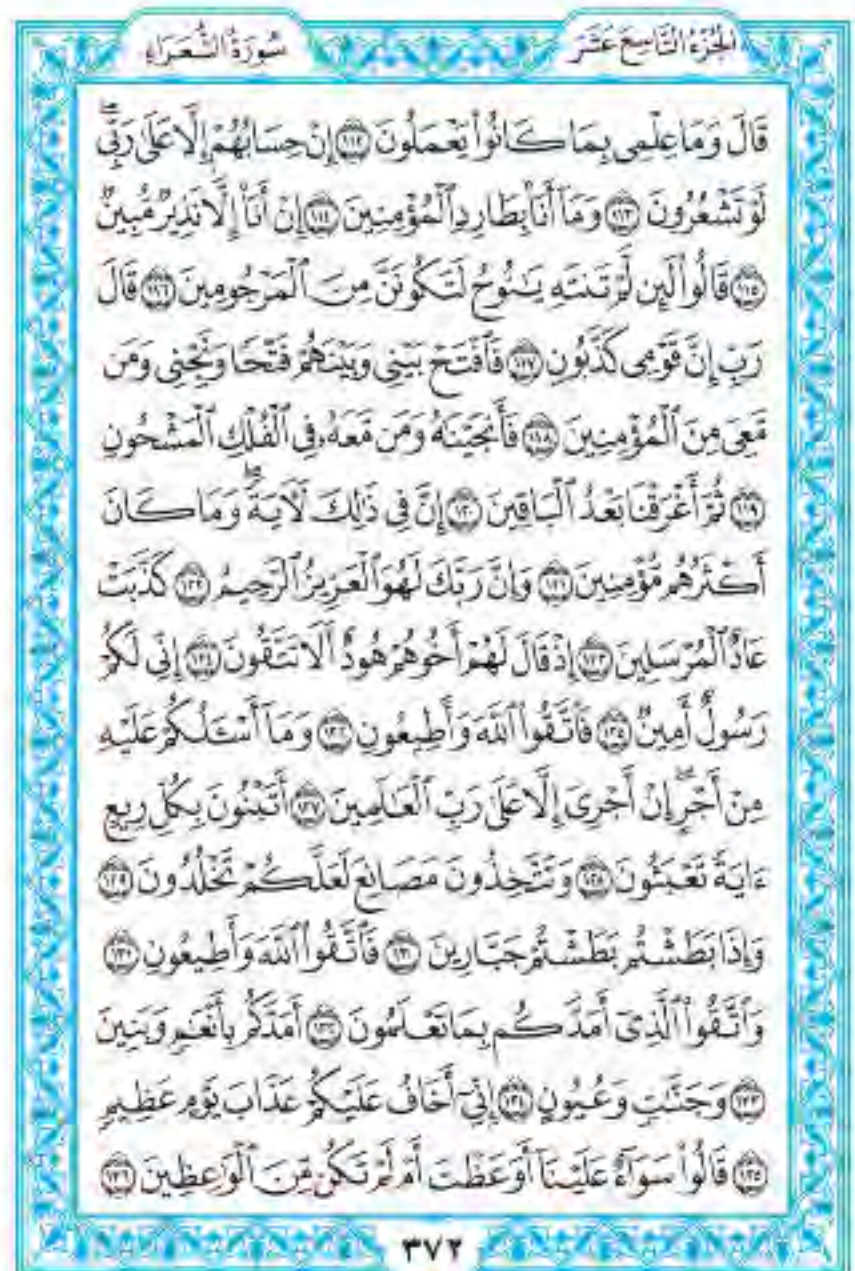 الجزء التاسع عشر
سورة الشعراء
قَالَ وَمَا عِلْمِى بِمَا كَانُوا۟ يَعْمَلُونَ ١١٢ إِنْ حِسَابُهُمْ إِلَّا عَلَىٰ رَبِّى ۖ
لَوْ تَشْعُرُونَ ١١٣ وَمَآ أَنَا۠ بِطَارِدِ ٱلْمُؤْمِنِينَ ١١٤ إِنْ أَنَا۠ إِلَّا نَذِيرٌ مُّبِينٌ
١١٥ قَالُوا۟ لَئِن لَّمْ تَنتَهِ يَٰنُوحُ لَتَكُونَنَّ مِنَ ٱلْمَرْجُومِينَ ١١٦ قَالَ
رَبِّ إِنَّ قَوْمِى كَذَّبُونِ ١١٧ فَٱفْتَحْ بَيْنِى وَبَيْنَهُمْ فَتْحًا وَنَجِّنِى وَمَن
مَّعِىَ مِنَ ٱلْمُؤْمِنِينَ ١١٨ فَأَنجَيْنَٰهُ وَمَن مَّعَهُۥ فِى ٱلْفُلْكِ ٱلْمَشْحُونِ
١١٩ ثُمَّ أَغْرَقْنَا بَعْدُ ٱلْبَاقِينَ ١٢٠ إِنَّ فِى ذَٰلِكَ لَءَايَةً ۖ وَمَا كَانَ
أَكْثَرُهُم مُّؤْمِنِينَ ١٢١ وَإِنَّ رَبَّكَ لَهُوَ ٱلْعَزِيزُ ٱلرَّحِيمُ ١٢٢ كَذَّبَتْ
عَادٌ ٱلْمُرْسَلِينَ ١٢٣ إِذْ قَالَ لَهُمْ أَخُوهُمْ هُودٌ أَلَا تَتَّقُونَ ١٢٤ إِنِّى لَكُمْ
رَسُولٌ أَمِينٌ ١٢٥ فَٱتَّقُوا۟ ٱللَّهَ وَأَطِيعُونِ ١٢٦ وَمَآ أَسْـَٔلُكُمْ عَلَيْهِ
مِنْ أَجْرٍ ۖ إِنْ أَجْرِىَ إِلَّا عَلَىٰ رَبِّ ٱلْعَٰلَمِينَ ١٢٧ أَتَبْنُونَ بِكُلِّ رِيعٍ
ءَايَةً تَعْبَثُونَ ١٢٨ وَتَتَّخِذُونَ مَصَانِعَ لَعَلَّكُمْ تَخْلُدُونَ ١٢٩
وَإِذَا بَطَشْتُم بَطَشْتُمْ جَبَّارِينَ ١٣٠ فَٱتَّقُوا۟ ٱللَّهَ وَأَطِيعُونِ ١٣١
وَٱتَّقُوا۟ ٱلَّذِىٓ أَمَدَّكُم بِمَا تَعْلَمُونَ ١٣٢ أَمَدَّكُم بِأَنْعَٰمٍ وَبَنِينَ
١٣٣ وَجَنَّٰتٍ وَعُيُونٍ ١٣٤ إِنِّىٓ أَخَافُ عَلَيْكُمْ عَذَابَ يَوْمٍ عَظِيمٍ
١٣٥ قَالُوا۟ سَوَآءٌ عَلَيْنَآ أَوَعَظْتَ أَمْ لَمْ تَكُن مِّنَ ٱلْوَٰعِظِينَ ١٣٦
٣٧٢